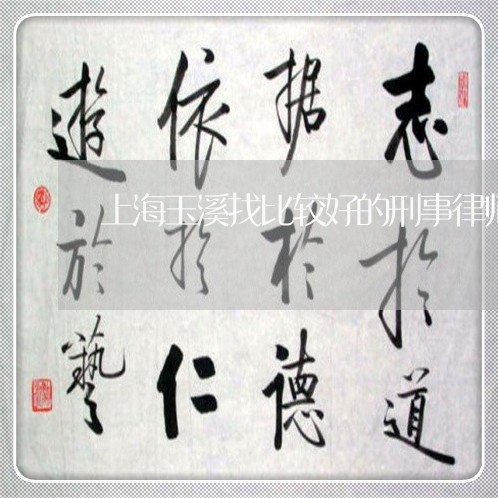 志於道
据於德
依於仁
遊於藝
上海玉溪找比较好的刑事律